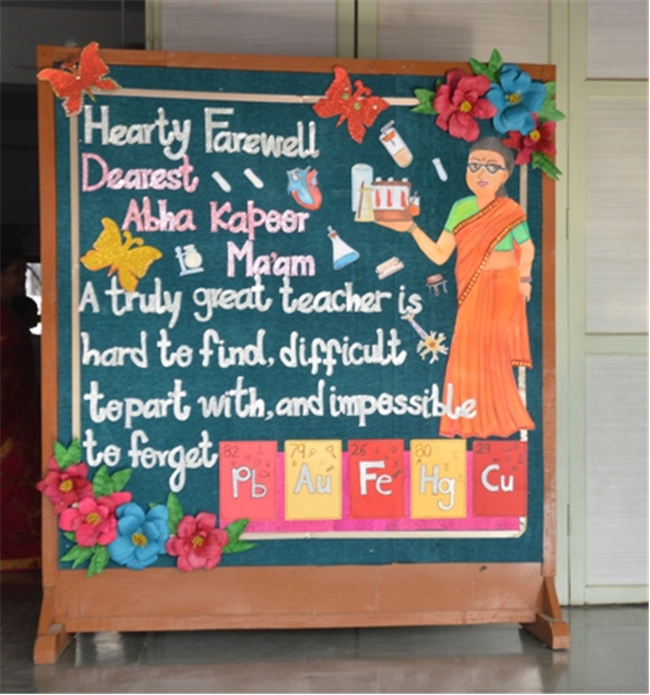 Hearty Farewell
Dearest
Abha Kapoor
Ma'am
A truly great teacher is
hard to find, difficult
to part with, and impossible
to forget
82 79 26 80 29
Pb Au Fe Hg Cu